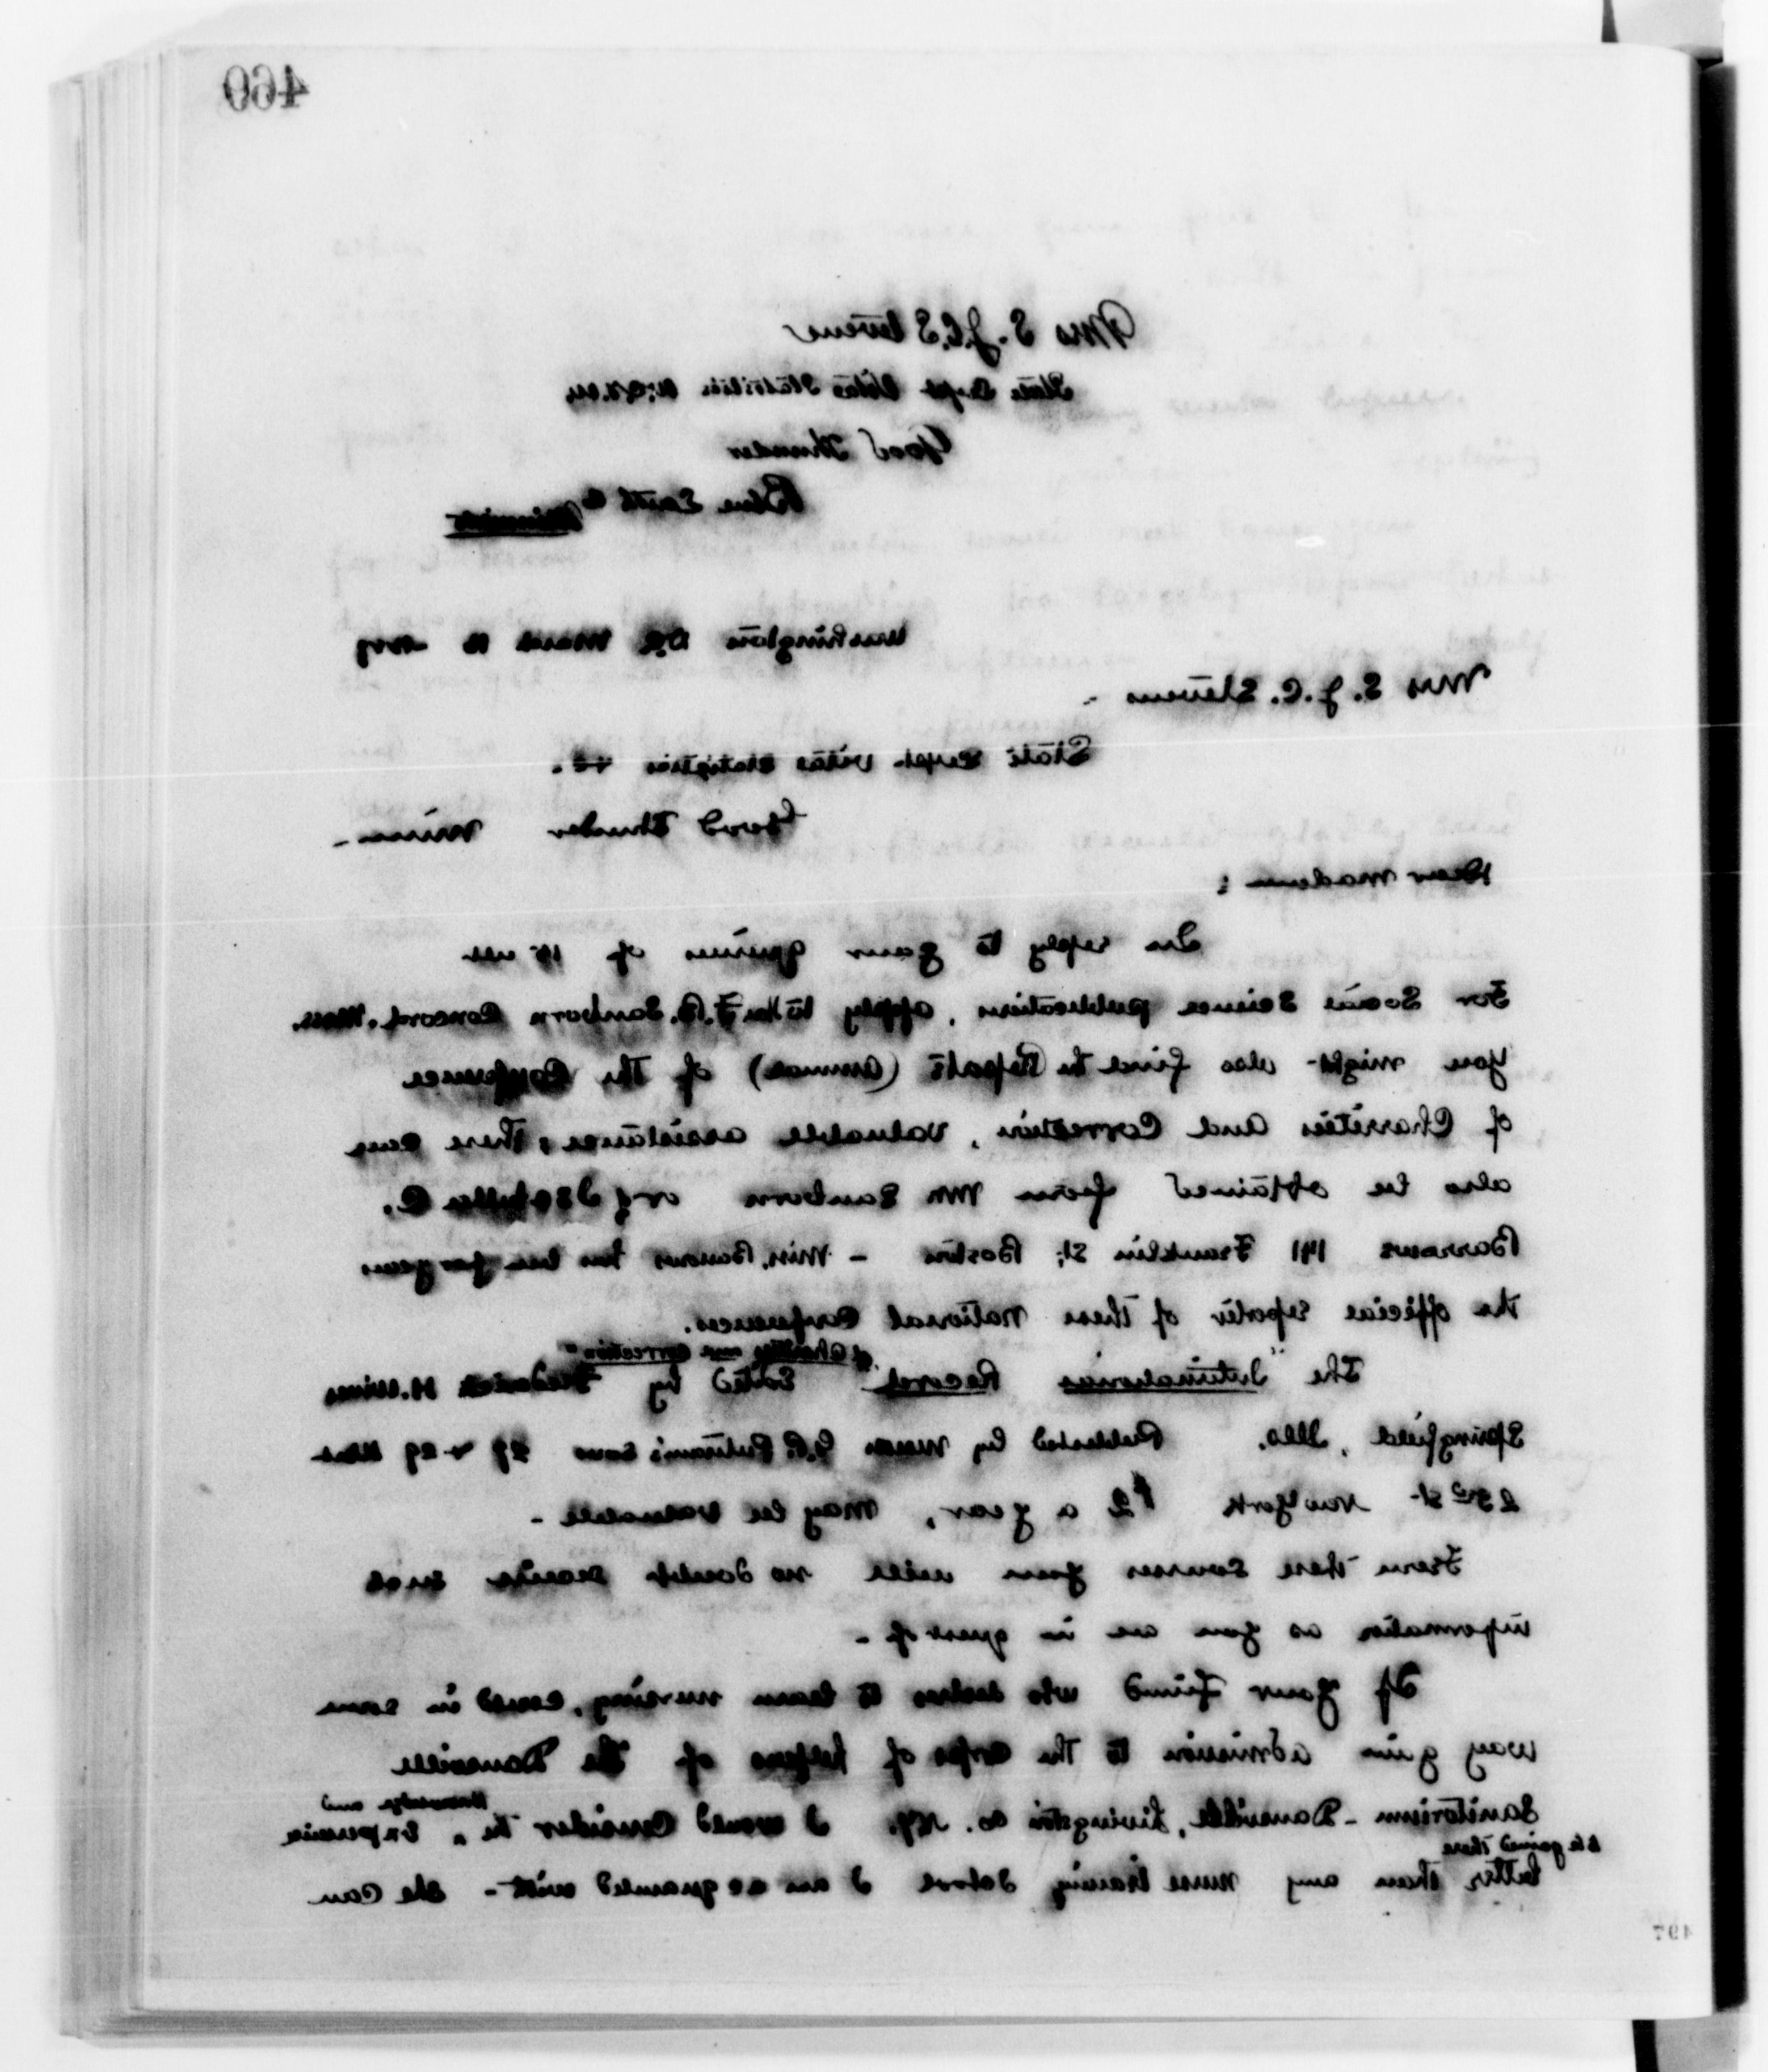 460
Mrs S. J. C. Stevens
State Supt Vital Statistics
Good Thunder
Blue Earth Co Minnesota
Washington DC March
Mrs S. J. C. Stevens -
State Supt. Vital Statistics &c.
Good Thunder Minn -
Dear Madam :
In reply to your queries of 15 ult
For Social Science publications, apply to Mr F. B. Sanborn Concord, Mass.
You might also find the Reports (annual) of the Conference
of Charities and Correction, valuable assistance, these can
also be obtained from Mr Sanborn or of Isabella C.
Barrows 141 Franklin St; Boston - Miss Barrows has been for years
the official reporter of these National Conferences.
of Charities and Correction"
The "International Record Edited by Frederick H. Wines
Springfield, Ills. Published by Mess G. P. Putnam's Sons 27 & 29 West
23rd St New York $2 a year, may be valuable -
From these sources you will no doubt secure such
information as you are in quest of -
If your friend who desires to learn nursing, could in some
way gain admission to the corps of helpers of the Dansville
knowledge and
Sanitorium - Dansville, Livingston Co. N.Y. I would consider the experience
to be gained there
better than any nurse training school I am acquainted with - She can
497